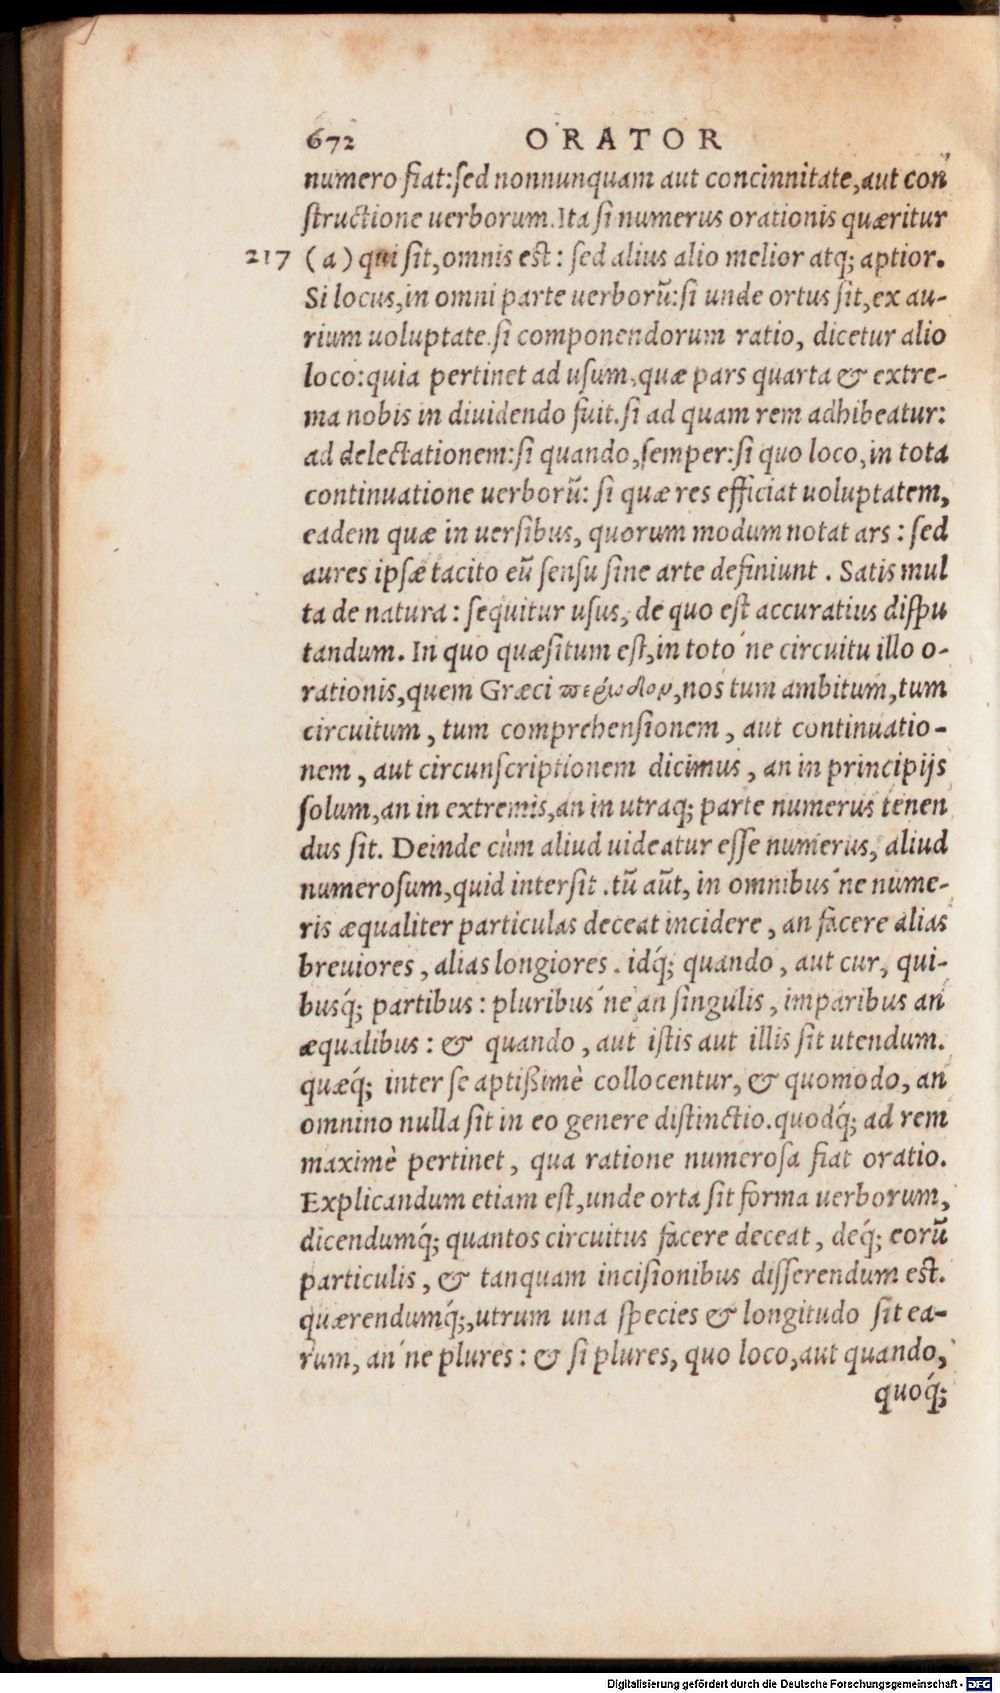 672 ORATOR
numero fiat: sed nonnunquam aut concinnitate, aut con
structione uerborum. Ita si numerus orationis quæritur
217 (a) qui sit, omnis est: sed alius alio melior atq; aptior.
Si locus, in omni parte uerborũ: si unde ortus sit, ex au-
rium uoluptate. si componendorum ratio, dicetur alio
loco: quia pertinet ad usum, quæ pars quarta & extre-
ma nobis in diuidendo fuit. si ad quam rem adhibeatur:
ad delectationem: si quando, semper: si quo loco, in tota
continuatione uerborũ: si quæ res efficiat uoluptatem,
eadem quæ in uersibus, quorum modum notat ars: sed
aures ipsæ tacito eũ sensu sine arte definiunt. Satis mul
ta de natura: sequitur usus, de quo est accuratius dispu
tandum. In quo quæsitum est, in toto'ne circuitu illo o-
rationis, quem Græci περίοδον, nos tum ambitum, tum
circuitum, tum comprehensionem, aut continuatio-
nem, aut circunscriptionem dicimus, an in principijs
solum, an in extremis, an in utraq; parte numerus tenen
dus sit. Deinde cùm aliud uideatur esse numerus, aliud
numerosum, quid intersit. tũ aũt, in omnibus'ne nume-
ris æqualiter particulas deceat incidere, an facere alias
breuiores, alias longiores. idq́; quando, aut cur, qui-
busq́; partibus: pluribus'ne an singulis, imparibus an
æqualibus: & quando, aut istis aut illis sit utendum.
quæq́; inter se aptißimè collocentur, & quomodo, an
omnino nulla sit in eo genere distinctio. quodq́; ad rem
maximè pertinet, qua ratione numerosa fiat oratio.
Explicandum etiam est, unde orta sit forma uerborum,
dicendumq́; quantos circuitus facere deceat, deq́; eorũ
particulis, & tanquam incisionibus disserendum est.
quærendumq́;, utrum una species & longitudo sit ea-
rum, an'ne plures: & si plures, quo loco, aut quando,
quoq́;
Digitalisierung gefördert durch die Deutsche Forschungsgemeinschaft - DFG